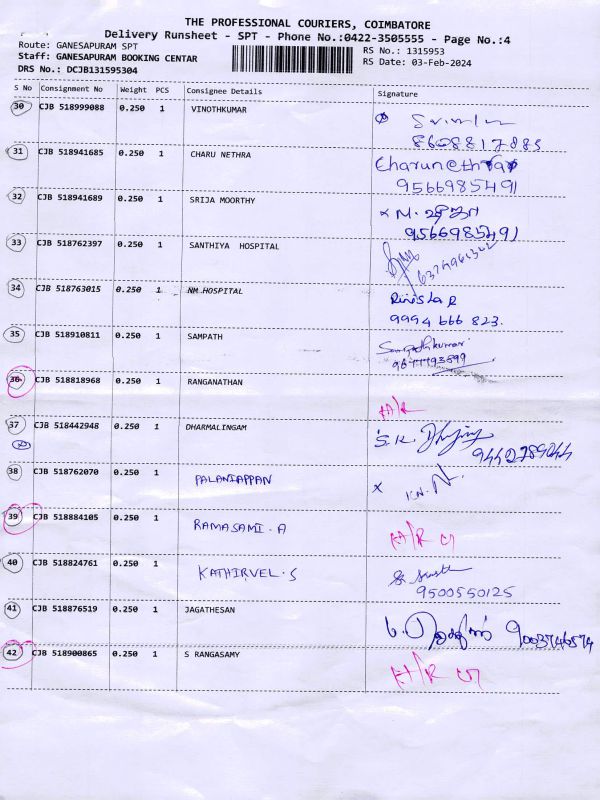 THE PROFESSIONAL COURIERS, COIMBATORE
Delivery Runsheet - SPT - Phone No.:0422-3505555 - Page No.:4
Route: GANESAPURAM SPT
RS No.: 1315953
Staff: GANESAPURAM BOOKING CENTAR
RS Date: 03-Feb-2024
DRS No.: DCJB131595304
S No Consignment No Weight PCS Consignee Details Signature
30 CJB 518999088 0.250 1 VINOTHKUMAR
8608817885
31 CJB 518941685 0.250 1 CHARU NETHRA
9566985491
32 CJB 518941689 0.250 1 SRIJA MOORTHY x M. ஸ்ரீஜா
9566985491
33 CJB 518762397 0.250 1 SANTHIYA HOSPITAL
34 CJB 518763015 0.250 1 NM HOSPITAL
9994 666 823.
35 CJB 518910811 0.250 1 SAMPATH Sampathkumar
36 CJB 518818968 0.250 1 RANGANATHAN
H/R
37 CJB 518442948 0.250 1 DHARMALINGAM S.K.
38 CJB 518762070 0.250 1 PALANIAPPAN x K.N.
39 CJB 518884105 0.250 1 RAMASAMI . A H/R
40 CJB 518824761 0.250 1 KATHIRVEL . S
9500550125
41 CJB 518876519 0.250 1 JAGATHESAN 9003746574
42 CJB 518900865 0.250 1 S RANGASAMY H/R